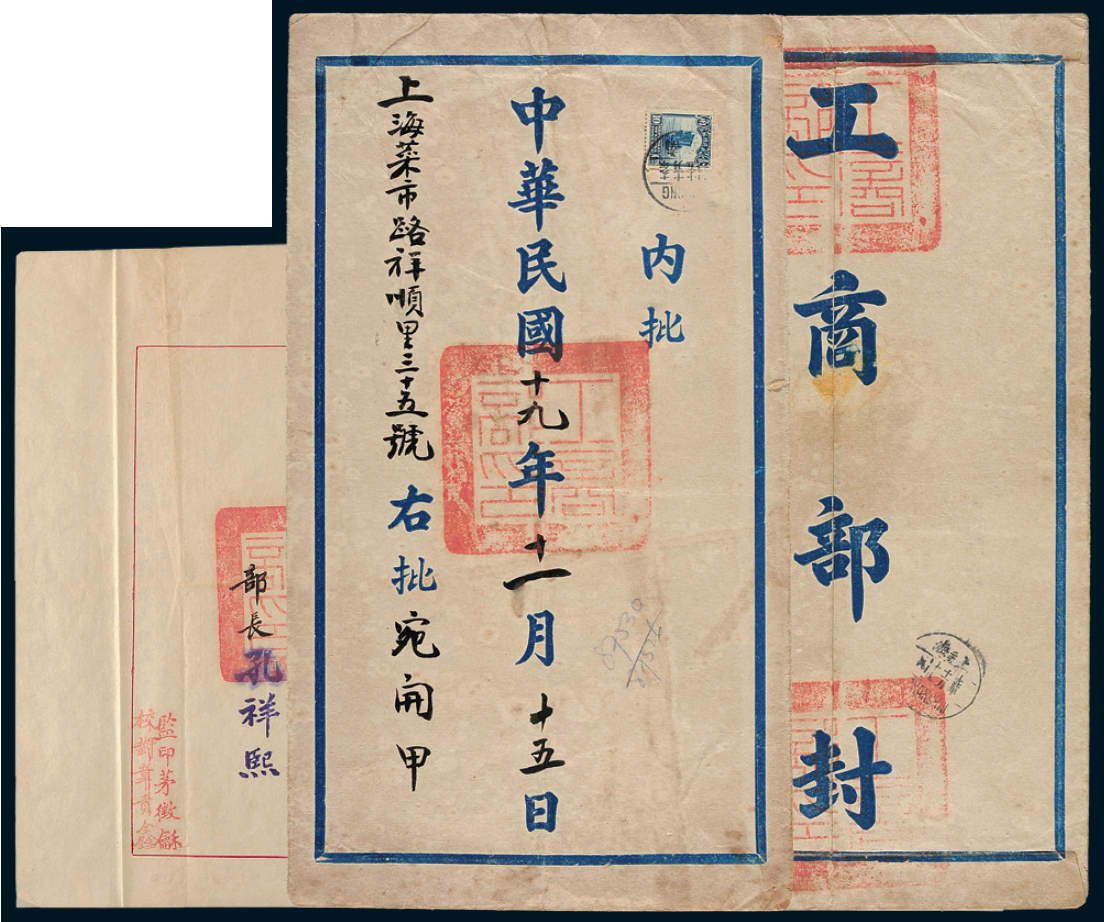 工商部封
内批
中華民國十九年十一月十五日
上海菜市路祥順里三十五號
右批宛開甲
89530
部長孔祥熙
監印茅徵龢
上海